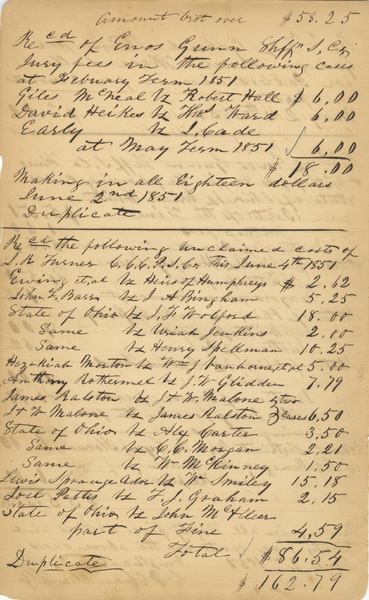 Amount brot over $58.25
Recd of Enos Gunn Shff S. Co
Jury fees in the following cases
at February Term 1851
Giles McNeal vs Robert Hall $6.00
David Heikes vs Thos Ward 6.00
Early vs I. Cade
at May Term 1851 6.00
$18.00
Making in all Eighteen dollars
June 2nd 1851
Duplicate
Recd the following unclaimed costs of
L. R. Turner C.C.C.P.S.Co. This June 4th 1851
Ewing et,al vs Heirs of Humphreys $2.62
John L Barr vs J A Bingham 5.25
State of Ohio vs J. F Wolford 18.00
Same vs Uriah Jenkins 2.00
Same vs Henry Spellman 10.25
Hezekiah Morton vs Wm J Vanhorn et,al 5.00
Anthony Rothermel vs J. W. Glidden 7.79
James Ralston vs J & W. Malone & two
J & W Malone vs James Ralston 3 cases 6.50
State of Ohio vs Alx Carter 3.50
Same vs C.C. Morgan 2.21
Same vs W McKinney 1.50
Lewis Sprouage Ador vs W Smiley 15.18
Joel Pettes vs F. J. Graham 2.15
State of Ohio vs John McAleer
part of Fine 4,59
Total $86.54
Duplicate $162.79